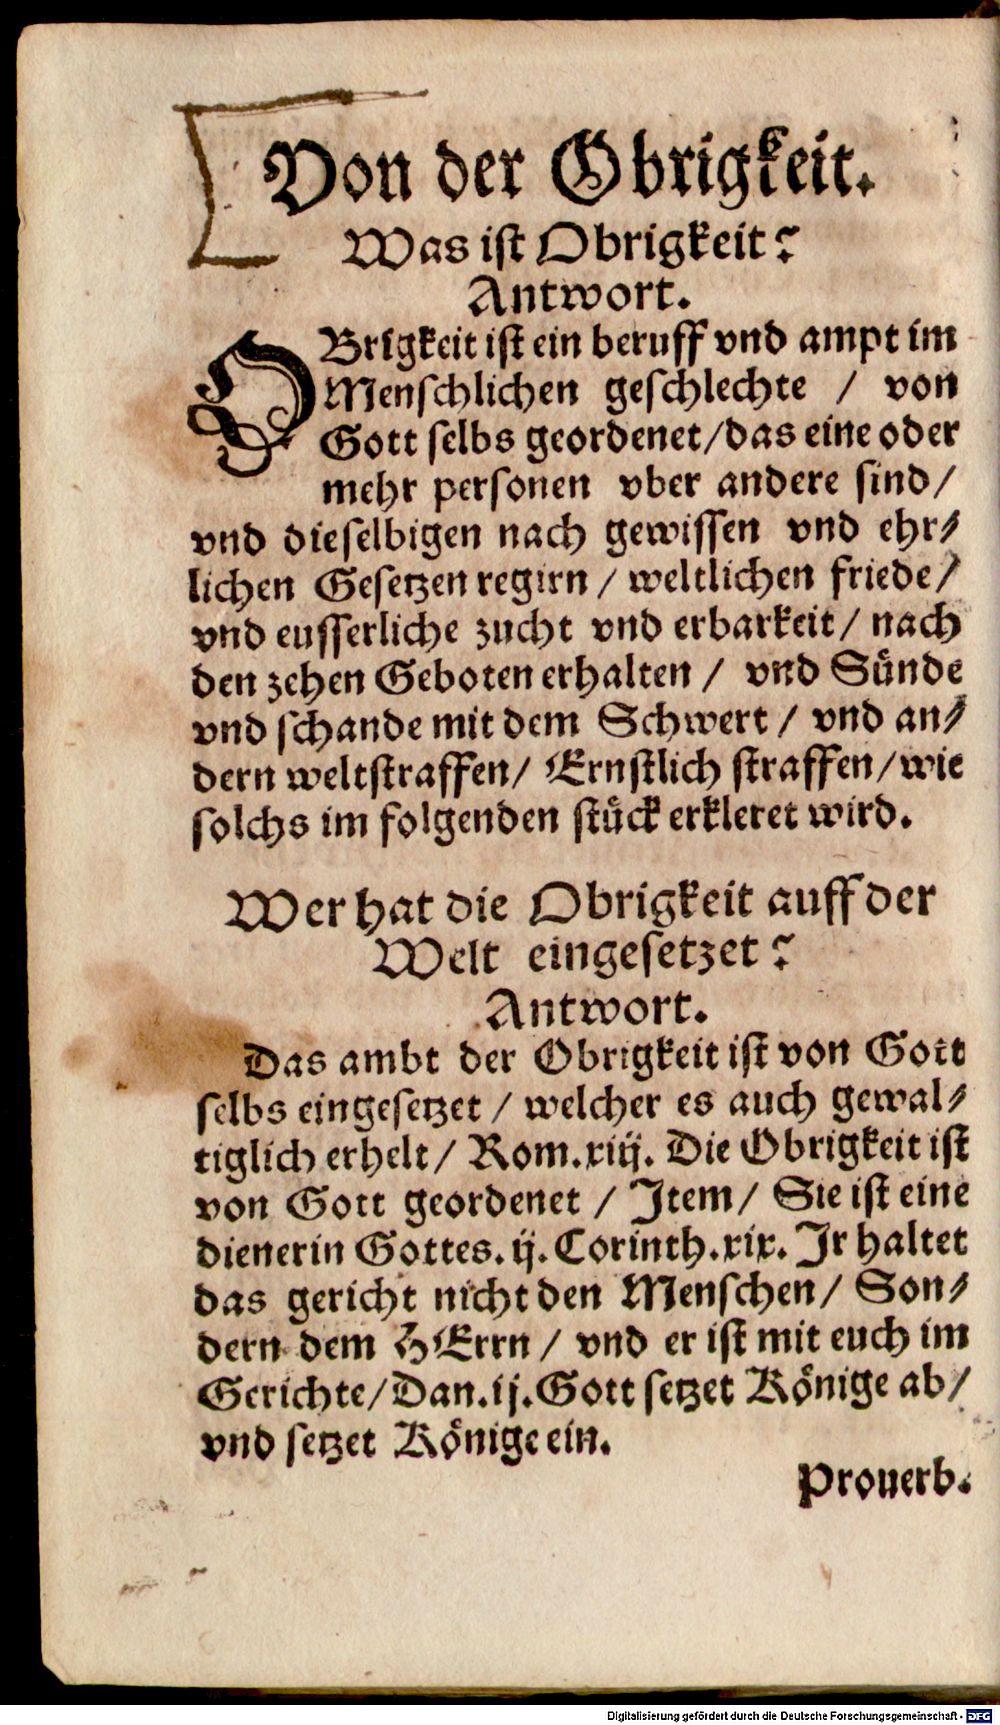 Von der Obrigkeit.
Was ist Obrigkeit?
Antwort.
OBrigkeit ist ein beruff vnd ampt im
Menschlichen geschlechte / von
Gott selbs geordenet/das eine oder
mehr personen vber andere sind/
vnd dieselbigen nach gewissen vnd ehr⸗
lichen Gesetzen regirn / weltlichen friede/
vnd eusserliche zucht vnd erbarkeit/ nach
den zehen Geboten erhalten / vnd Sünde
vnd schande mit dem Schwert / vnd an⸗
dern weltstraffen/ Ernstlich straffen/wie
solchs im folgenden stück erkleret wird.
Wer hat die Obrigkeit auff der
Welt eingesetzet?
Antwort.
Das ambt der Obrigkeit ist von Gott
selbs eingesetzet / welcher es auch gewal⸗
tiglich erhelt/ Rom.xiij. Die Obrigkeit ist
von Gott geordenet / Item/ Sie ist eine
dienerin Gottes. ij. Corinth.xix. Ir haltet
das gericht nicht den Menschen/ Son⸗
dern dem HErrn / vnd er ist mit euch im
Gerichte/Dan.ij.Gott setzet Könige ab/
vnd setzet Könige ein.
Prouerb.
Digitalisierung gefördert durch die Deutsche Forschungsgemeinschaft - DFG